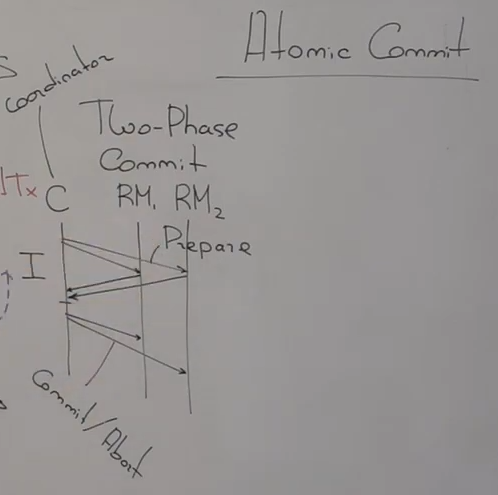 Atomic Commit
coordinator
Two-Phase
Commit
Tx C RM1 RM2
Prepare
I
Commit/Abort